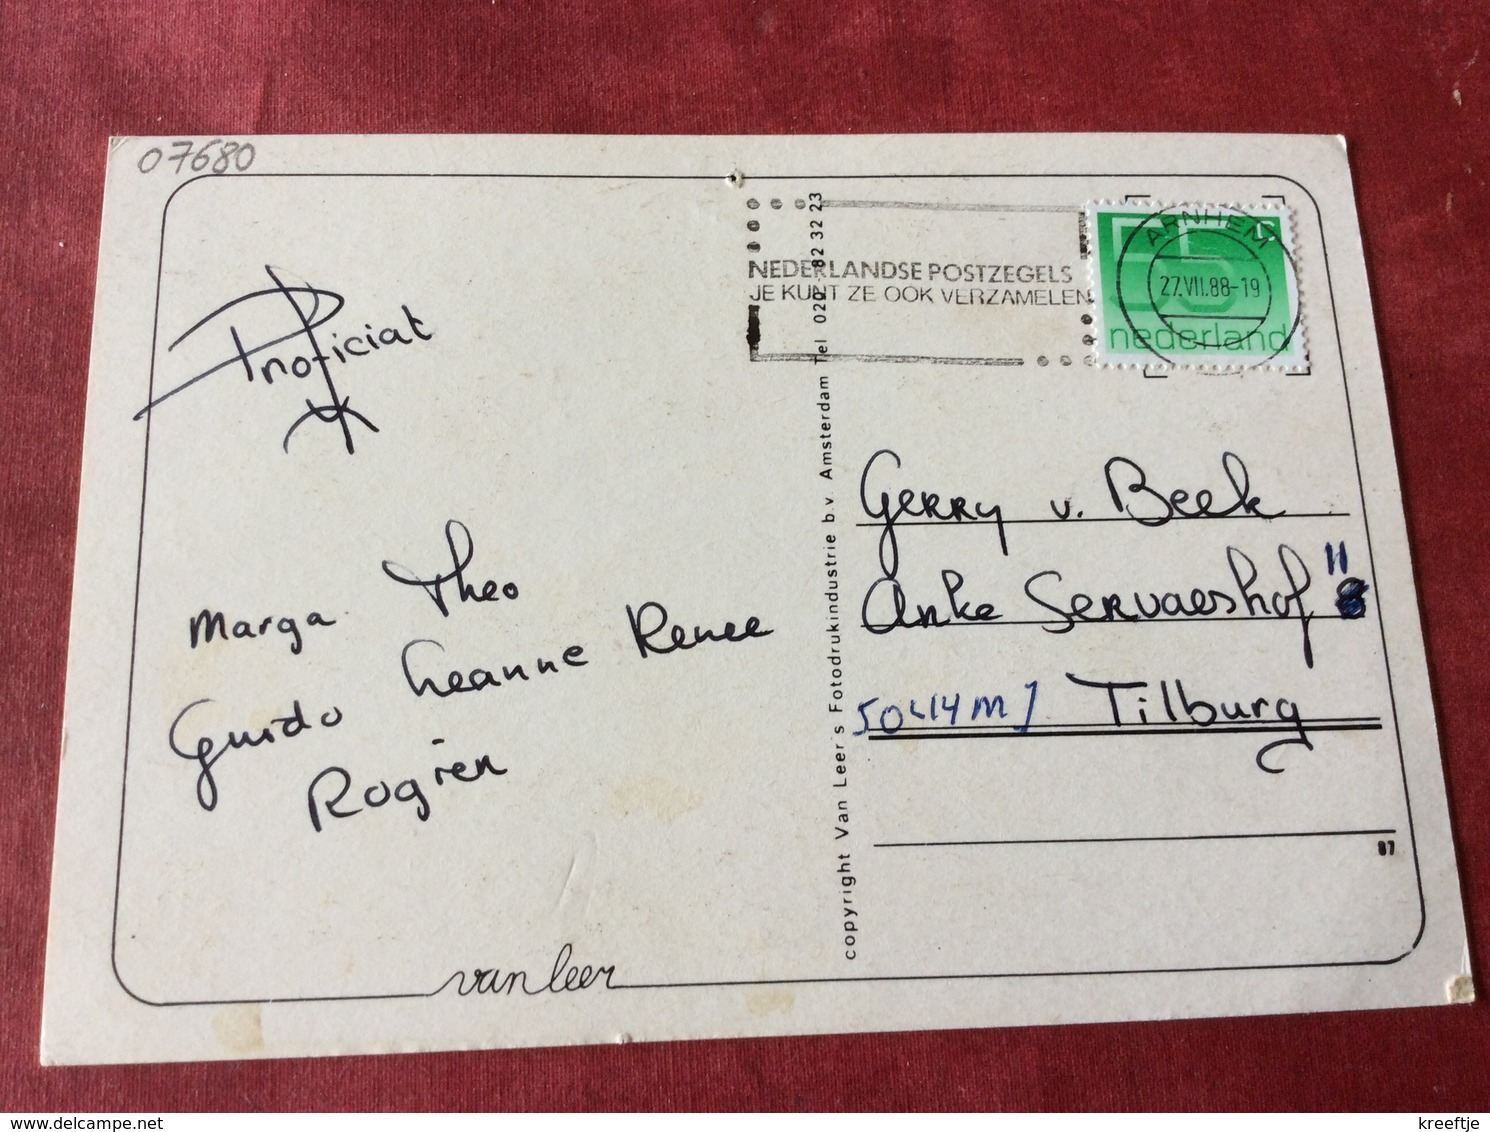 07680
Proficiat
Marga Theo
Guido Leanne Renee
Rogier
van leer
copyright Van Leer's Fotodrukindustrie b.v. Amsterdam Tel 020 - 82 32 23
NEDERLANDSE POSTZEGELS
JE KUNT ZE OOK VERZAMELEN
ARNHEM
27.VII.88-19
55 c
nederland
Gerry v. Beek
Anke Servaeshof 11
Tilburg
87
kreeftje